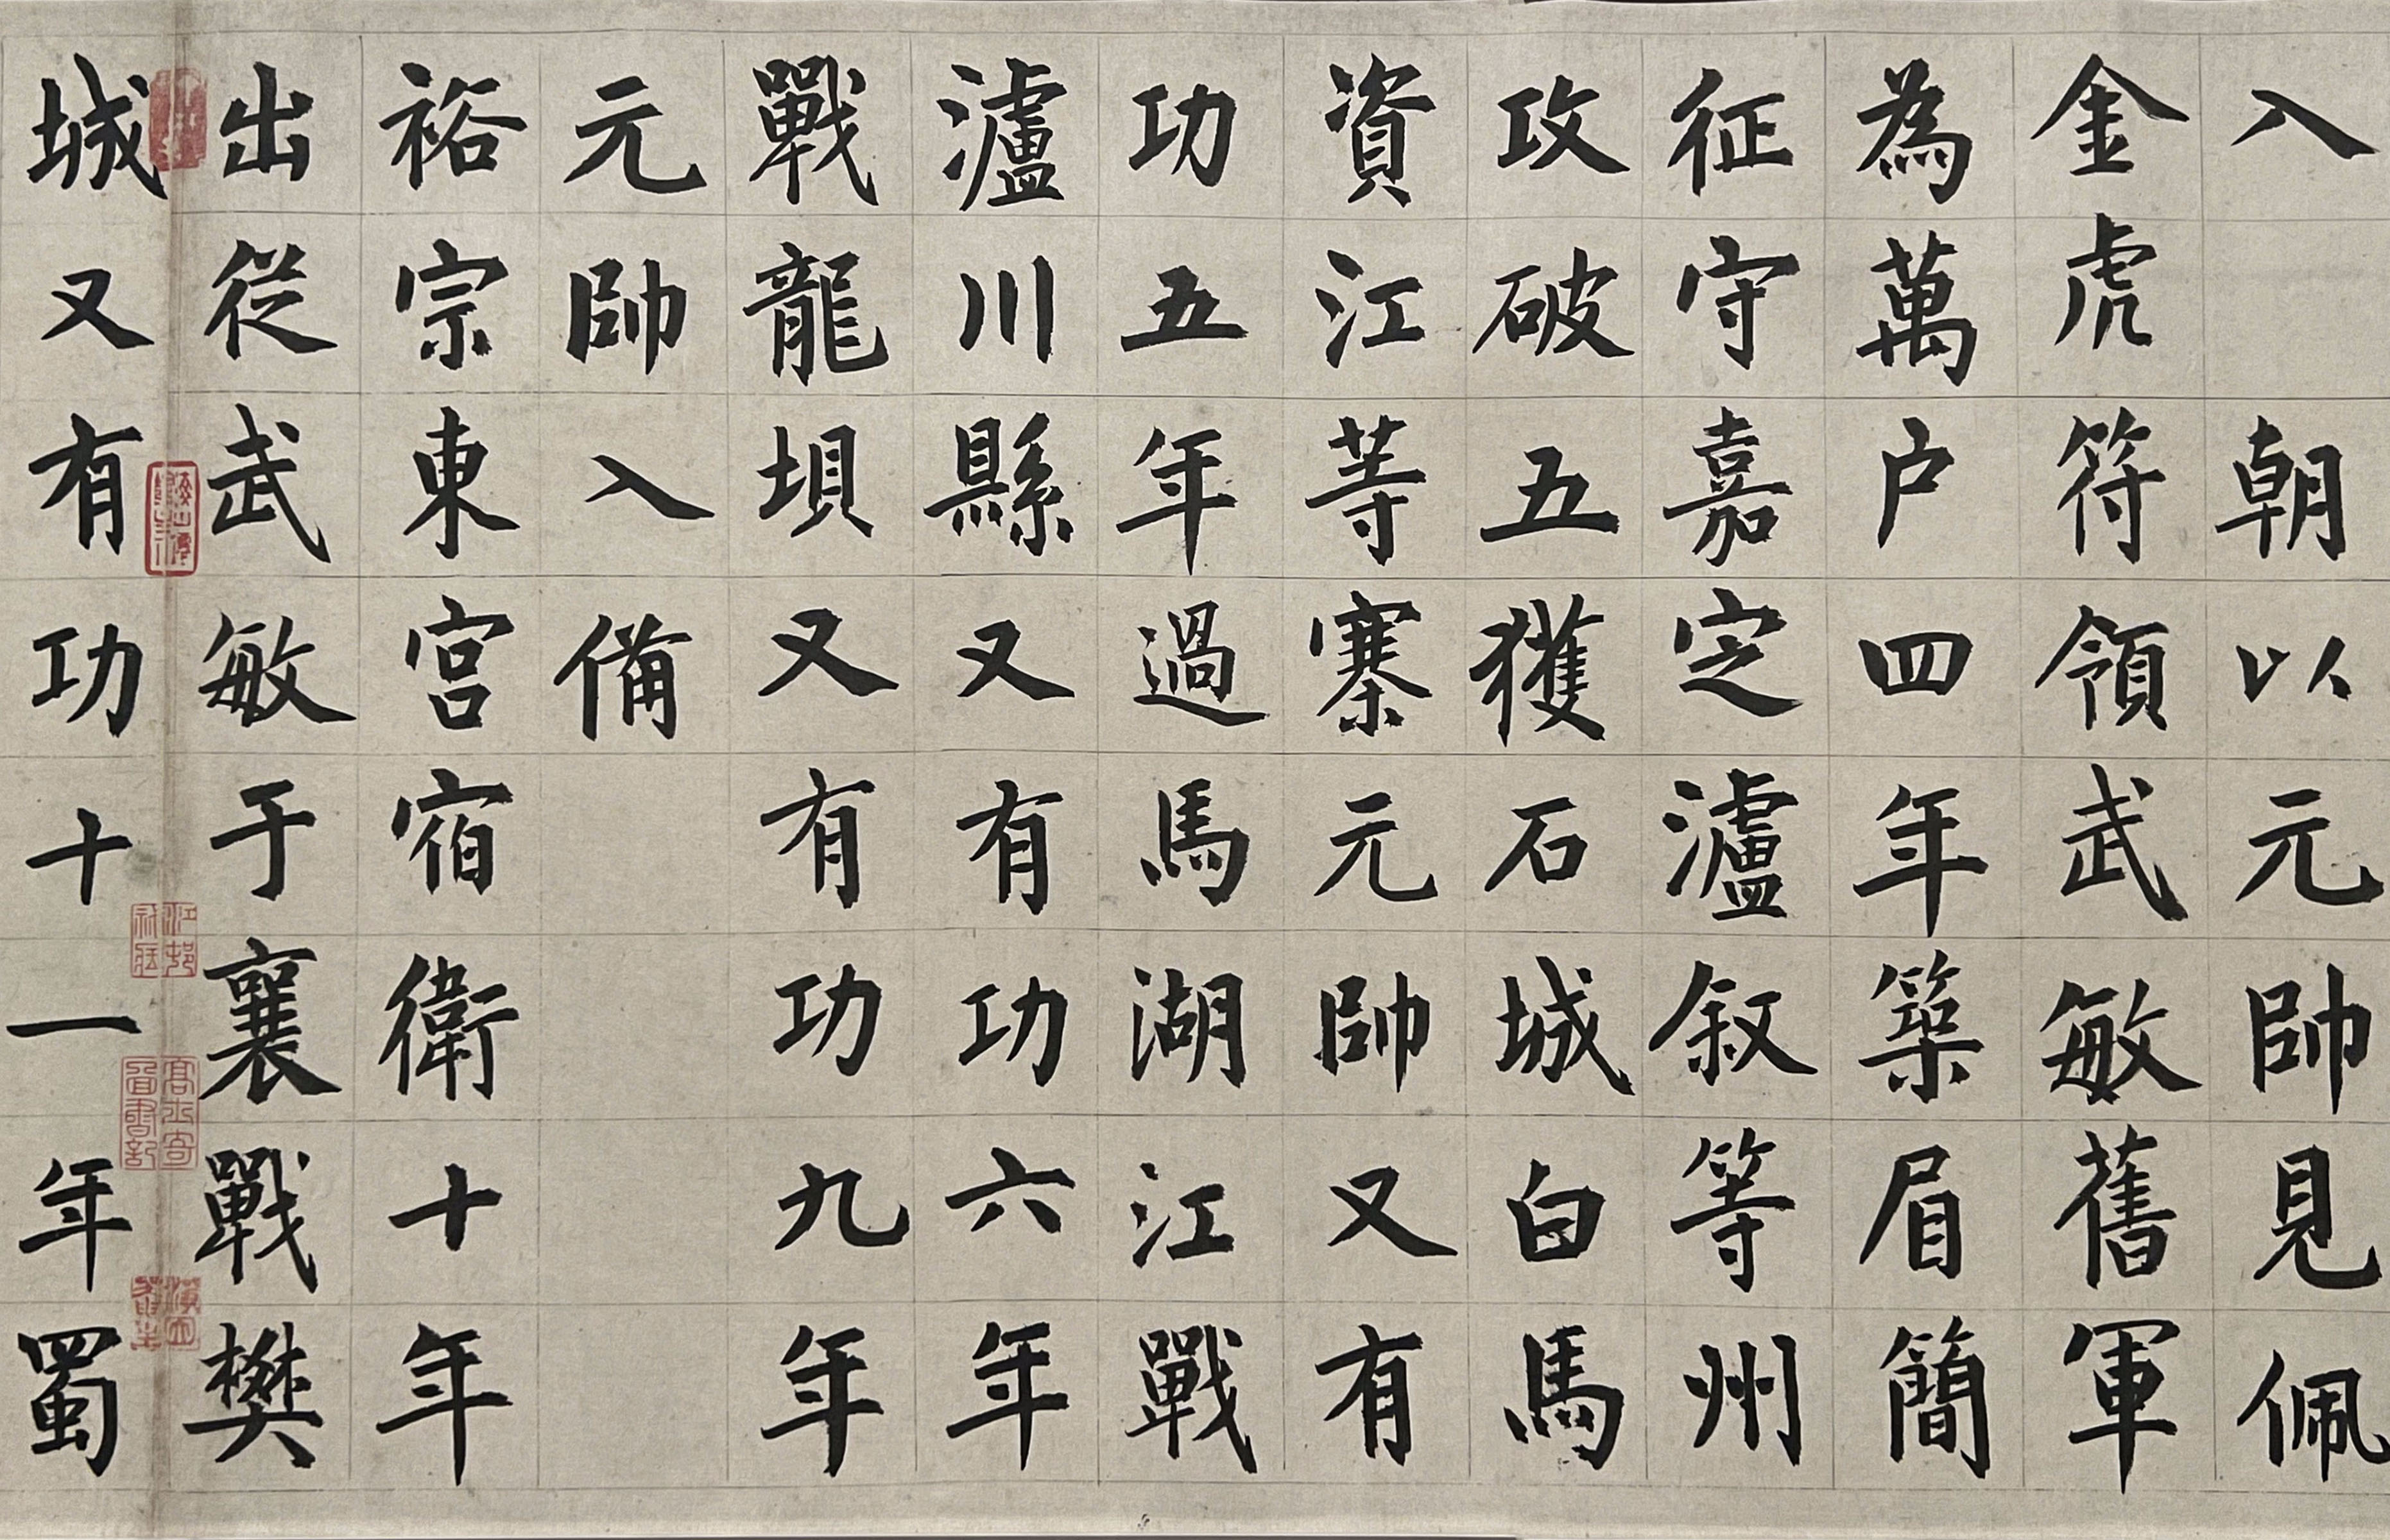 入 朝以元帥見佩
金虎符領武敏舊軍
為萬户四年築眉簡
征守嘉定瀘叙等州
攻破五獲石城白馬
資江等寨元帥又有
功五年過馬湖江戰
瀘川縣又有功六年
戰龍垻又有功九年
元帥入備
裕宗東宮宿衛十年
出從武敏于襄戰樊
城又有功十一年蜀